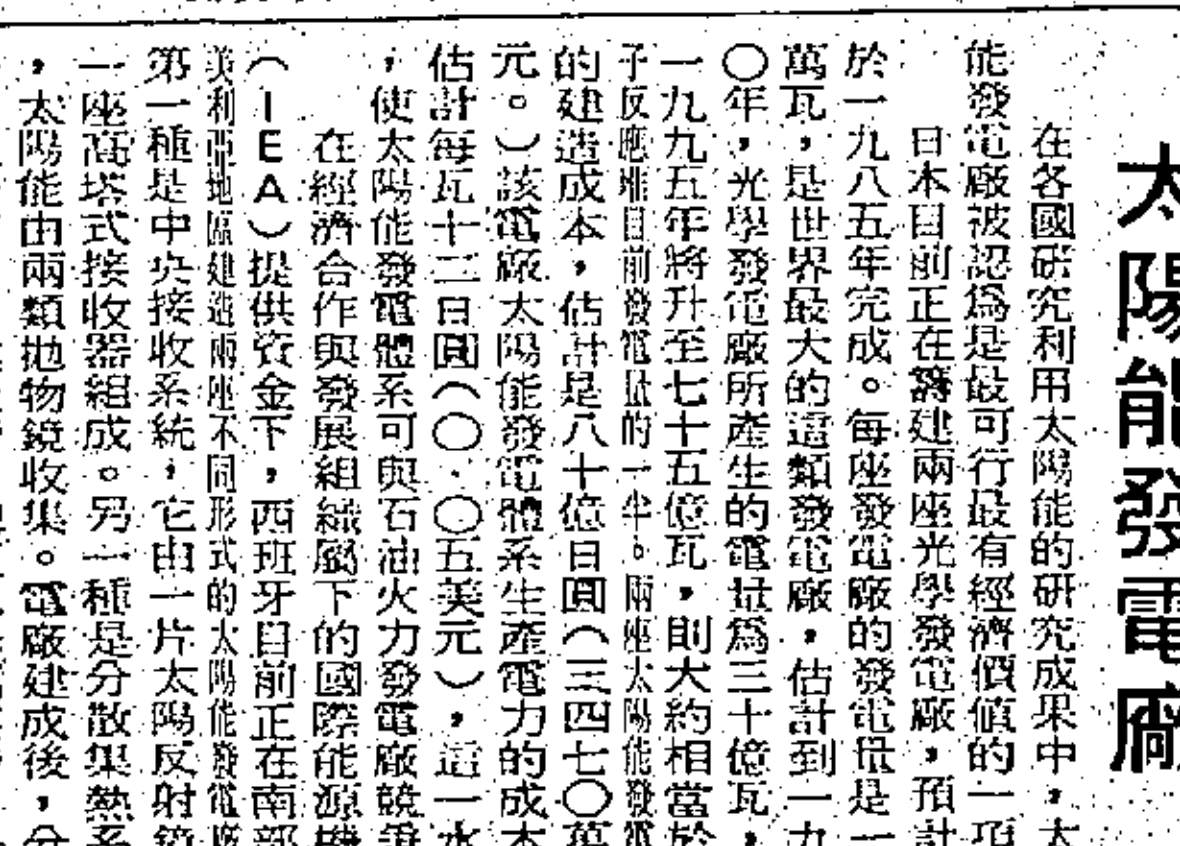 太陽能發電廠
在各國研究利用太陽能的研究成果中，太
能發電廠被認爲是最可行最有經濟價值的一項
日本目前正在籌建兩座光學發電廠，預計
於一九八五年完成。每座發電廠的發電量是一
萬瓦，是世界最大的這類發電廠，估計到一九
〇年，光學發電廠所產生的電量爲三十億瓦，
一九九五年將升至七十五億瓦，則大約相當於
子反應堆目前發電量的一半。兩座太陽能發電
的建造成本，估計是八十億日圓（三四七〇萬
元。）該電廠太陽能發電體系生產電力的成本
估計每瓦十二日圓（〇．〇五美元），這一水
，使太陽能發電體系可與石油火力發電廠競爭
在經濟合作與發展組織屬下的國際能源機
（IEA）提供資金下，西班牙目前正在南部
美利亞地區建造兩座不同形式的太陽能發電廠
第一種是中央接收系統，它由一片太陽反射鏡
一座高塔式接收器組成。另一種是分散集熱系
，太陽能由兩類拋物鏡收集。電廠建成後，分